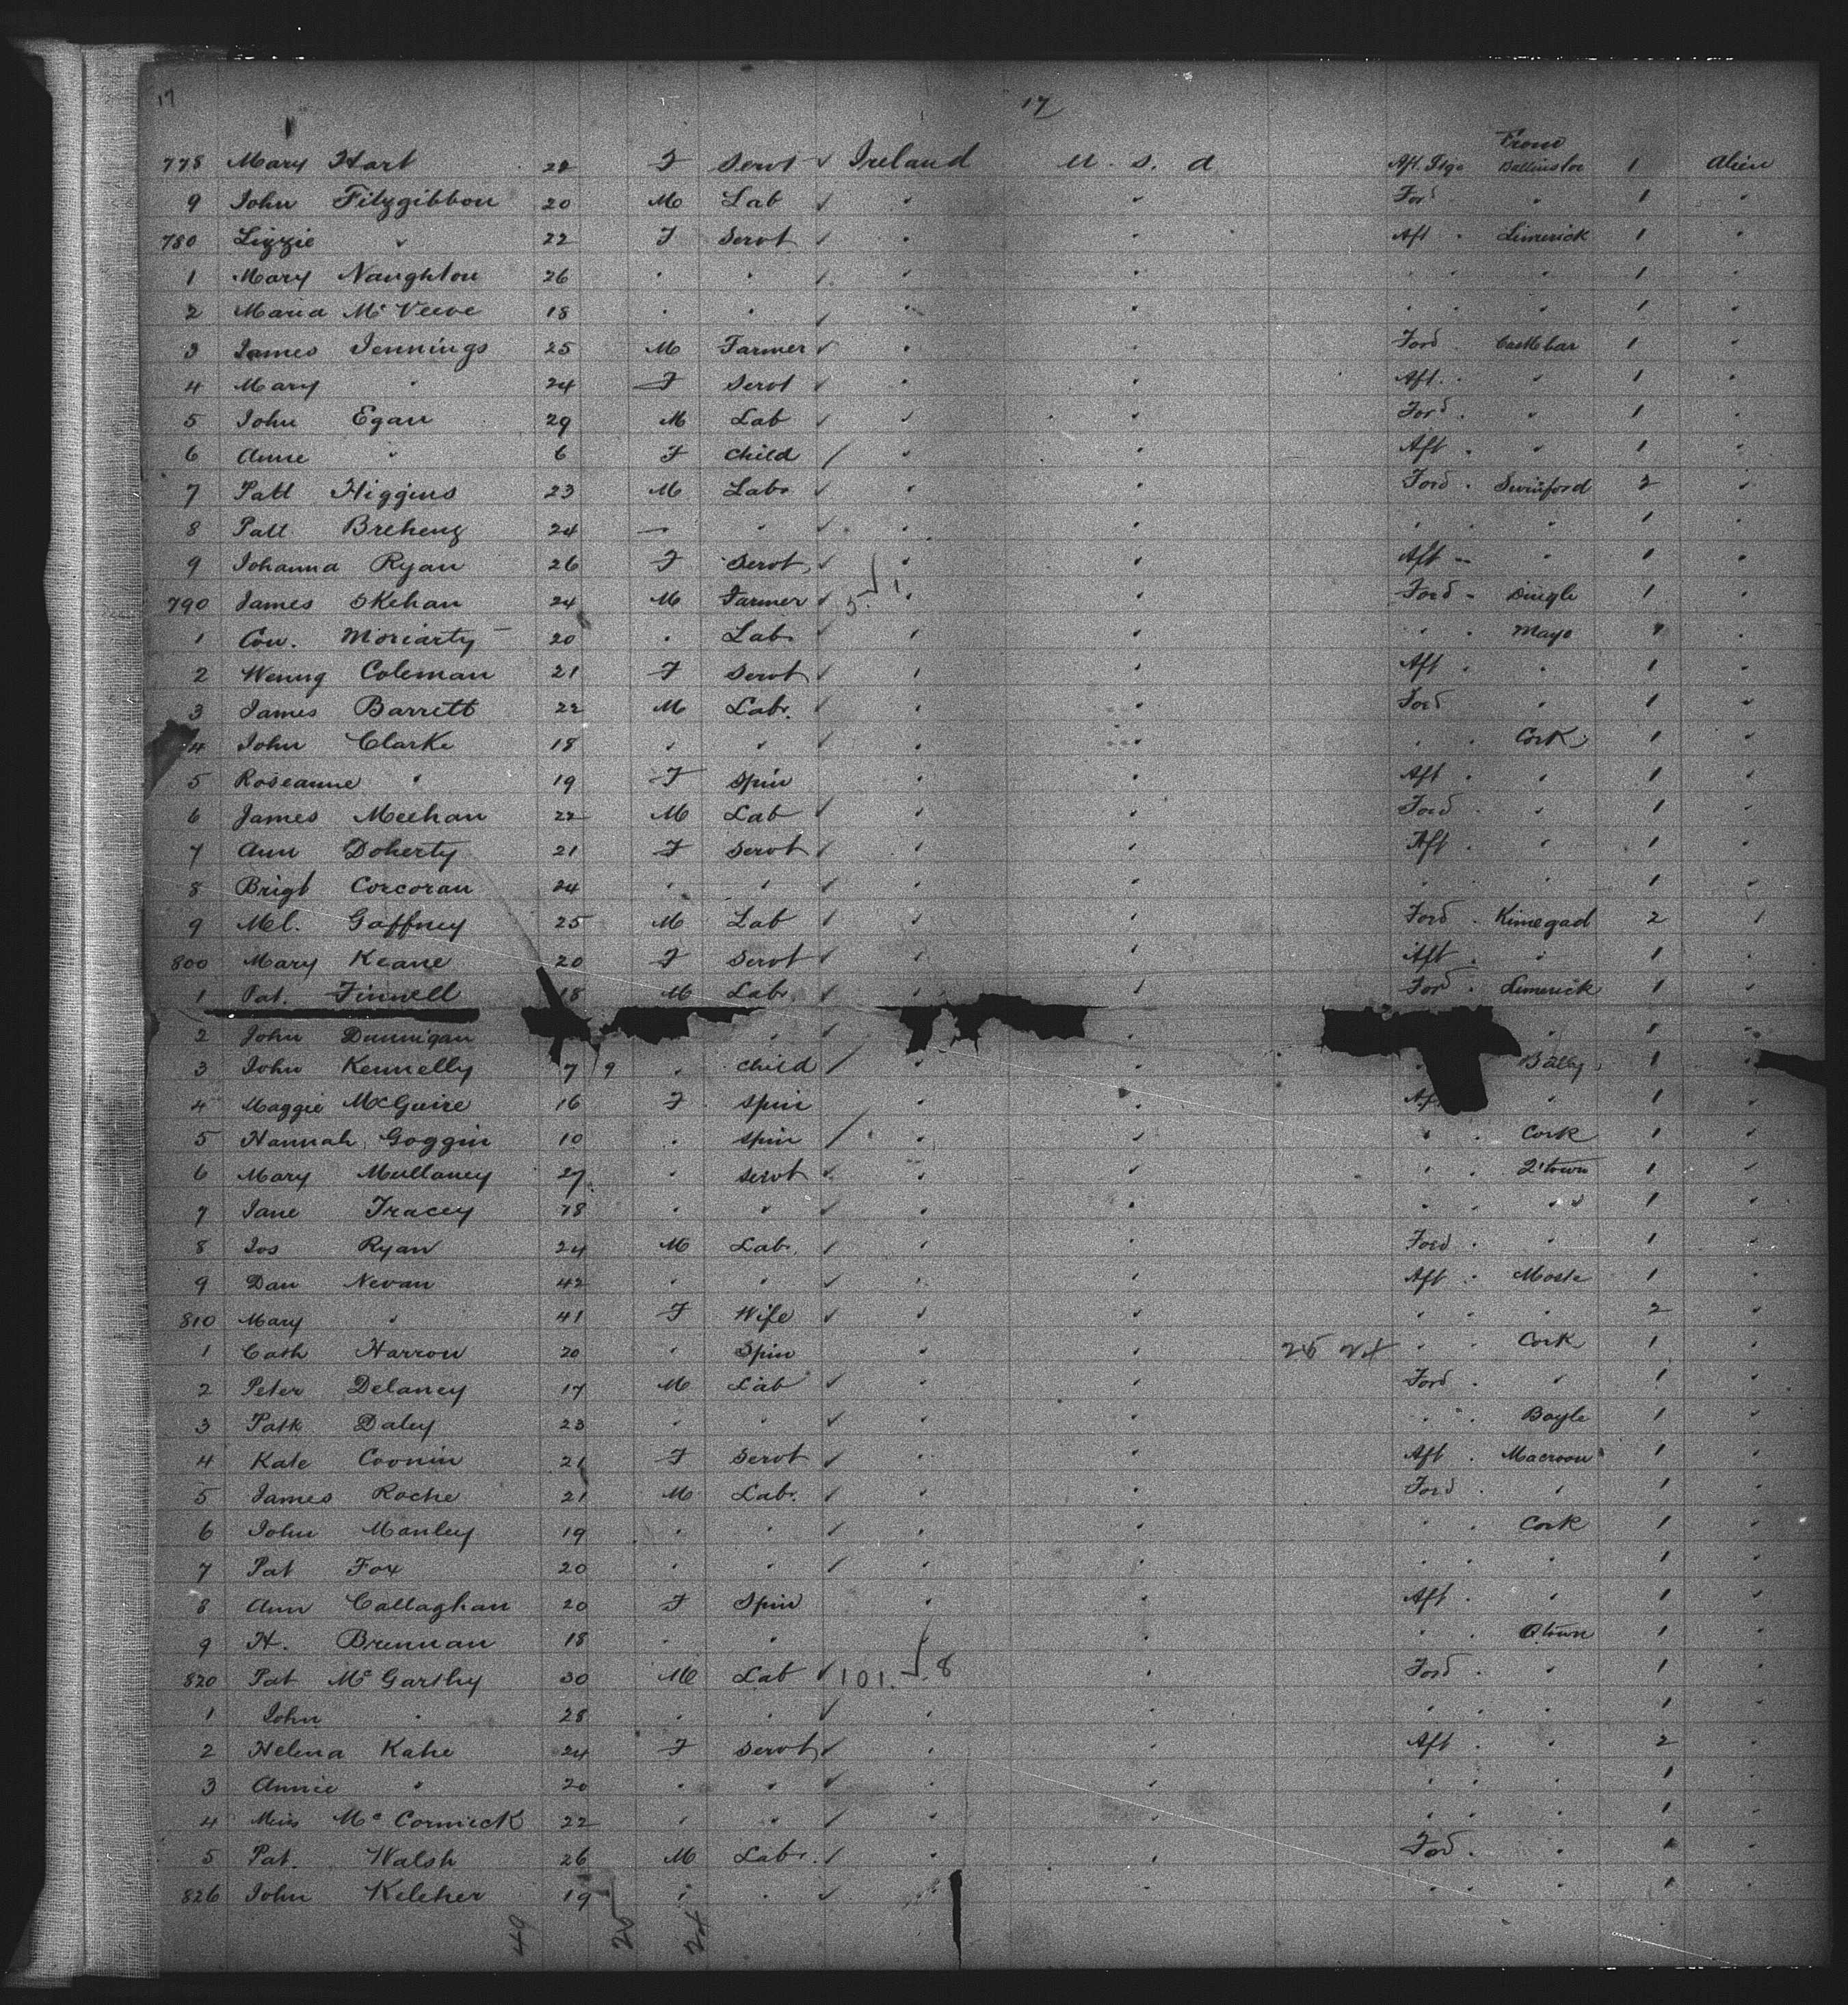 17 17
From
778 Mary Hart 22 F Servt ✓ Ireland U. S. A Aft Stge 1 Alien
9 John Fitzgibbon 20 M Lab ✓ " " Ford " 1 "
780 Lizzie " 22 F Servt ✓ " " Aft " Limerick 1 "
1 Mary Naughton 26 " " ✓ " " " " " 1 "
2 Maria Mc Veeve 18 " " ✓ " " " " " 1 "
3 James Jennings 25 M Farmer ✓ " " Ford Castlebar 1 "
4 Mary " 24 F Servt ✓ " " Aft " " 1 "
5 John Egan 29 M Lab ✓ " " Ford " " 1 "
6 Anne " 6 F Child / " " Aft " " 1 "
7 Patt Higgins 23 M Labr ✓ " " Ford " Swinford 2 "
8 Patt Breheny 24 — " ✓ " " " " " 1 "
9 Johanna Ryan 26 F Servt ✓ " " Aft " " 1 "
790 James Skehan 24 M Farmer ✓ 5 1 " " Ford " Dingle 1 "
1 Con. Moriarty 20 " Lab ✓ " " " " Mayo 1 "
2 Coleman 21 F Servt ✓ " " Aft " " 1 "
3 James Barrett 22 M Labr. ✓ " " Ford " 1 "
4 John Clarke 18 " " ✓ " " " " Cork 1 "
5 Roseanne " 19 F Spin " " Aft " " 1 "
6 James Meehan 22 M Lab ✓ " " Ford " " 1 "
7 Ann Doherty 21 F Servt ✓ " " Aft " " 1 "
8 Brigt Corcoran 24 " " ✓ " " " " 1 "
9 Ml. Gaffney 25 M Lab ✓ " " Ford " Kinegad 2 "
800 Mary Keane 20 F Servt ✓ " " Aft " " 1 "
1 Pat. Finnell 18 M Labr. ✓ " " Ford " Limerick 1 "
2 John Dunnigan " ✓ " " 1 "
3 John Kennelly 7 9 " Child / " " " 1 "
4 Maggie McGuire 16 F Spin " " Aft " 1 "
5 Hannah Goggin 10 " Spin / " " " " Cork 1 "
6 Mary Mullaney 27 " Servt ✓ " " " " Q'town 1 "
7 Jane Tracey 18 " " ✓ " " " " " " 1 "
8 Jos Ryan 24 M Lab. ✓ " " Ford " " 1 "
9 Dan Nevan 42 " " ✓ " " Aft " Moate 1 "
810 Mary " 41 F Wife ✓ " " " " " 2 "
1 Cath Harron 20 " Spin " " 25 24 " " Cork 1 "
2 Peter Delaney 17 M Lab ✓ " " Ford " " 1 "
3 Patk Daley 23 " " ✓ " " " " Boyle 1 "
4 Kate Coonin 21 F Servt ✓ " " Aft " Macroom 1 "
5 James Roche 21 M Lab. ✓ " " Ford " " 1 "
6 John Manley 19 " " ✓ " " " " Cork 1 "
7 Pat Fox 20 " " ✓ " " " " " 1 "
8 Ann Callaghan 20 F Spin " " Aft " " 1 "
9 H. Brennan 18 " " " " " " Qtown 1 "
820 Pat Mc Garthy 30 M Lab ✓ 101. 8 " Ford " " 1 "
1 John " 28 " " ✓ " " " " " 1 "
2 Helena Kahe 24 F Servt ✓ " " Aft " " 2 "
3 Annie " 20 " " ✓ " " " " " 1 "
4 Mc Cormick 22 " " ✓ " " " " " 1 "
5 Pat. Walsh 26 M Labr. ✓ " " Ford " " 1 "
826 John Keleher 19 " " ✓ " " " " 1 "
49 25 24